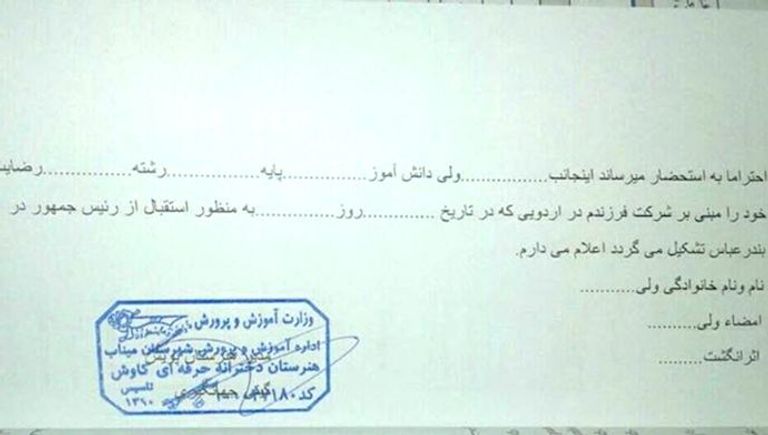 احتراما به استحضار میرساند اینجانب..................ولی دانش آموز..................پایه....................رشته....................رضایت
خود را مبنی بر شرکت فرزندم در اردویی که در تاریخ ...............روز.................به منظور استقبال از رئیس جمهور در
بندرعباس تشکیل می گردد اعلام می دارم.
نام ونام خانوادگی ولی............
امضاء ولی...........
اثرانگشت..........
وزارت آموزش و پرورش
اداره آموزش و پرورش شهرستان میناب
هنرستان دخترانه حرفه ای کاوش
تاسیس
۱۳۹۰